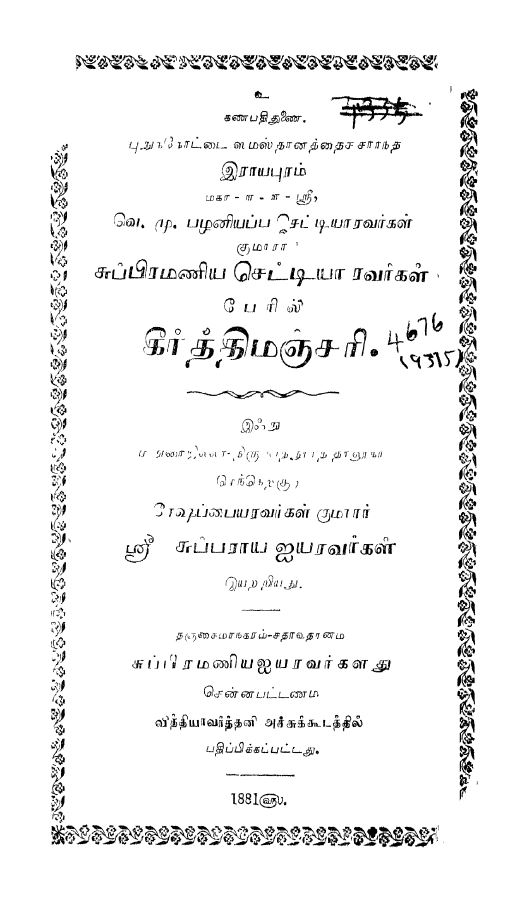 உ
கணபதிதுணை.
புதுக்கோட்டை ஸமஸ்தானத்தைச் சார்ந்த
இராயபுரம்
மகா-ா-ா-ஸ்ரீ,
வெ. மு. பழனியப்ப செட்டியாரவர்கள்
குமாரர்
சுப்பிரமணிய செட்டியா ரவர்கள்
பேரில்
கீர்த்திமஞ்சரி.
4676
(9375)
இஃது
சேஷப்பையரவர்கள் குமாரர்
ஸ்ரீ சுப்பராய ஐயரவர்கள்
இயற்றியது.
தஞ்சைமாநகரம்-சதாவதானம்
சுப்பிரமணியஐயரவர்களது
சென்னபட்டணம்
வித்தியாவர்த்தனி அச்சுக்கூடத்தில்
பதிப்பிக்கப்பட்டது.
1881௵.